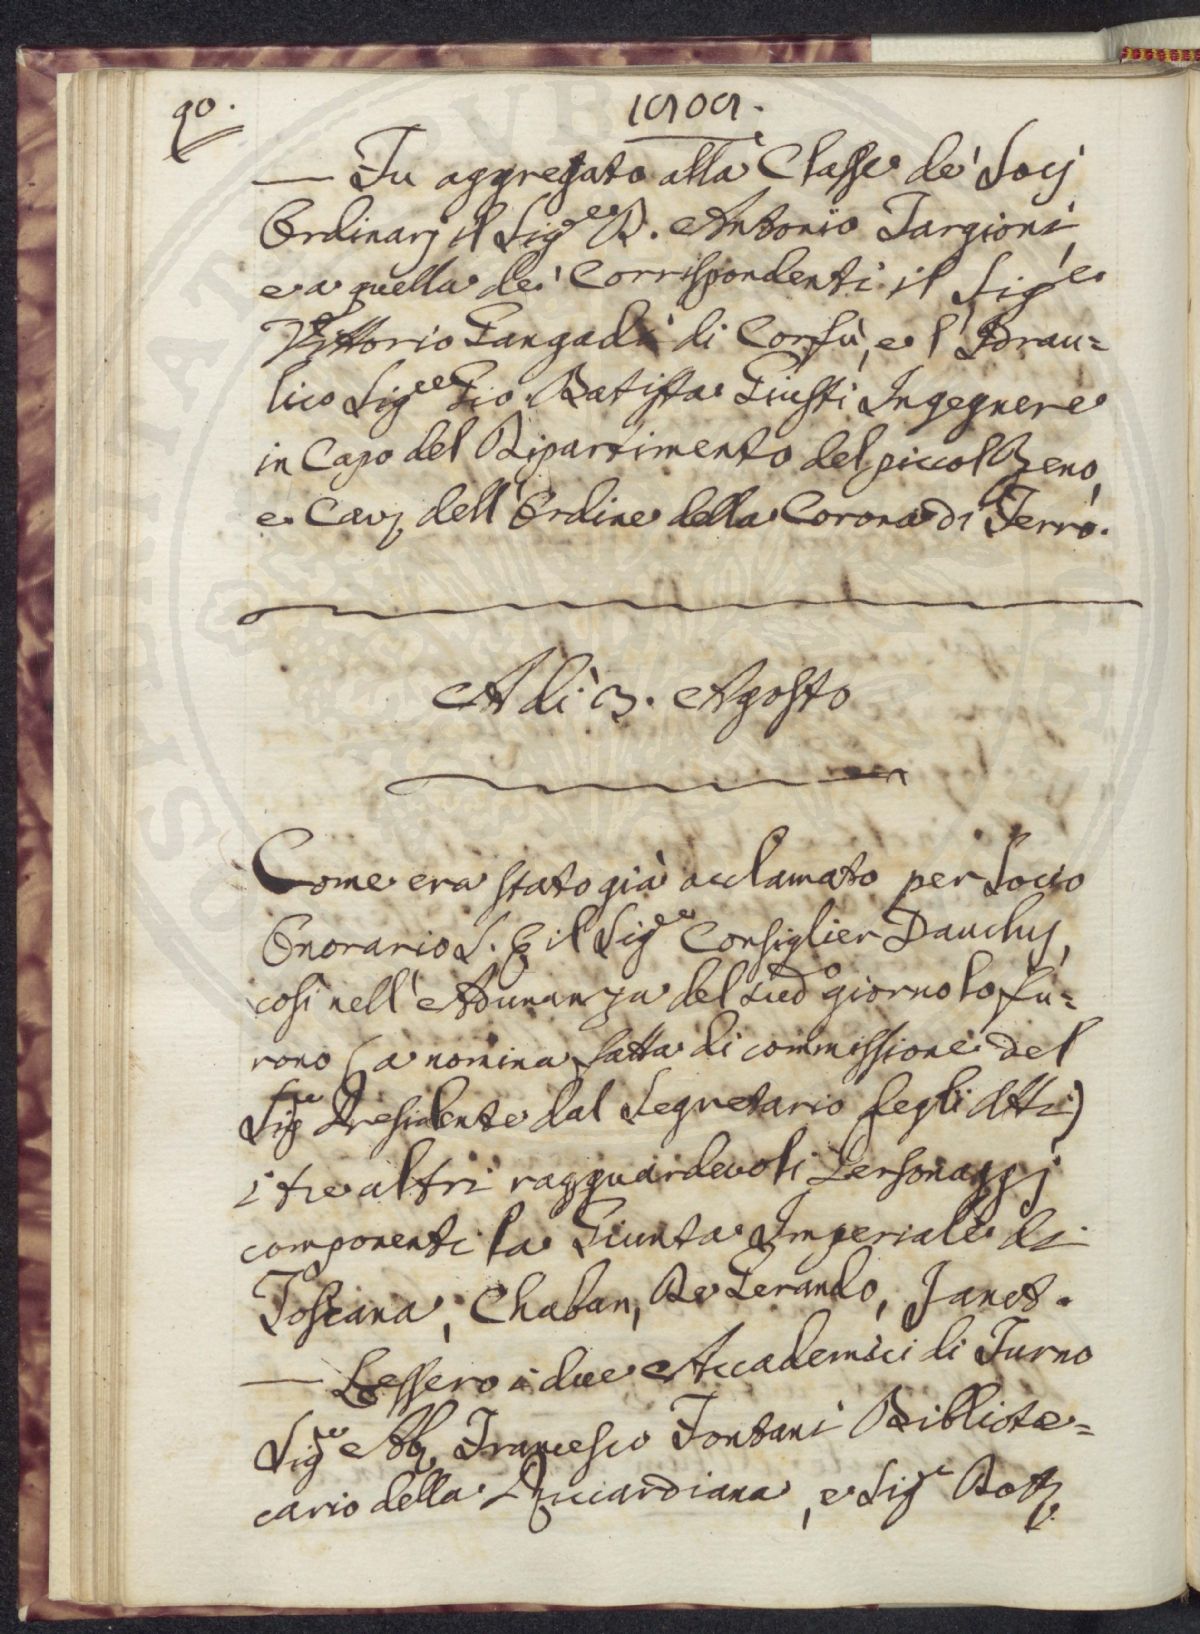 90.
1809.
— Fu aggregato alla Classe de' Socj
Ordinarj il Sig.re D. Antonio Targioni,
e a quella de' Corrispondenti il Sig.re
Vittorio Gangadi di Corfù, e l'Idrau=
lico Sig.re Gio. Batista Giusti Ingegnere
in Capo del Dipartimento del piccol Reno,
e Cav. dell'Ordine della Corona di Ferro.
A dì 3. Agosto
Come era stato già acclamato per Socio
Onorario S. E. il Sig.re Consiglier Dauchy,
così nell'Adunanza del sud.o giorno lo fu=
rono (a nomina fatta di commissione del
Sig.re Presidente dal Segretario degli Atti)
i tre altri ragguardevoli Personaggj
componenti la Giunta Imperiale di
Toscana, Chaban, De Gerando, Janet.
— Lessero i due Accademici di Turno
Sig.re Ab. Francesco Fontani Bibliote=
cario della Riccardiana, e Sig.r Dott.